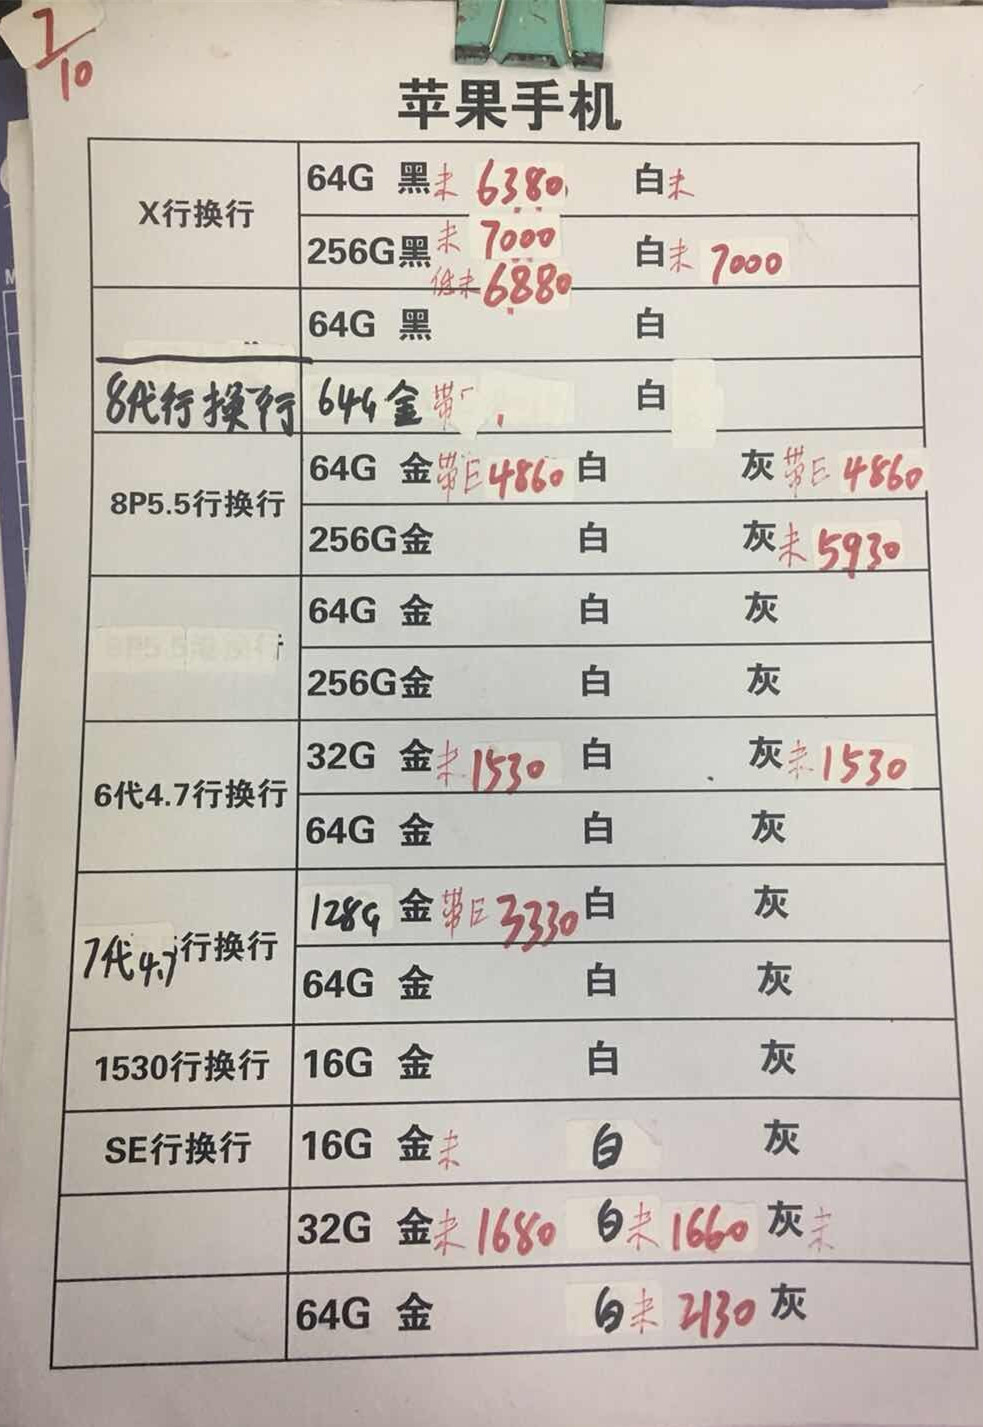 7/10
苹果手机
X行换行 64G 黑未 6380 白未
256G黑未 7000 白未 7000
低未6880
64G 黑 白
8代行换行 64G 金带 白
8P5.5行换行 64G 金带E 4860 白 灰带E 4860
256G金 白 灰未 5930
64G 金 白 灰
256G金 白 灰
6代4.7行换行 32G 金未1530 白 灰未1530
64G 金 白 灰
7代4.7行换行 128G 金带E 3330 白 灰
64G 金 白 灰
1530行换行 16G 金 白 灰
SE行换行 16G 金未 白 灰
32G 金未1680 白未1660 灰未
64G 金 白未 2130 灰